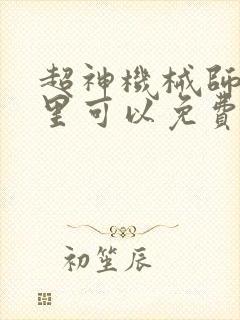 超神機械師
里可以免費
初笙辰